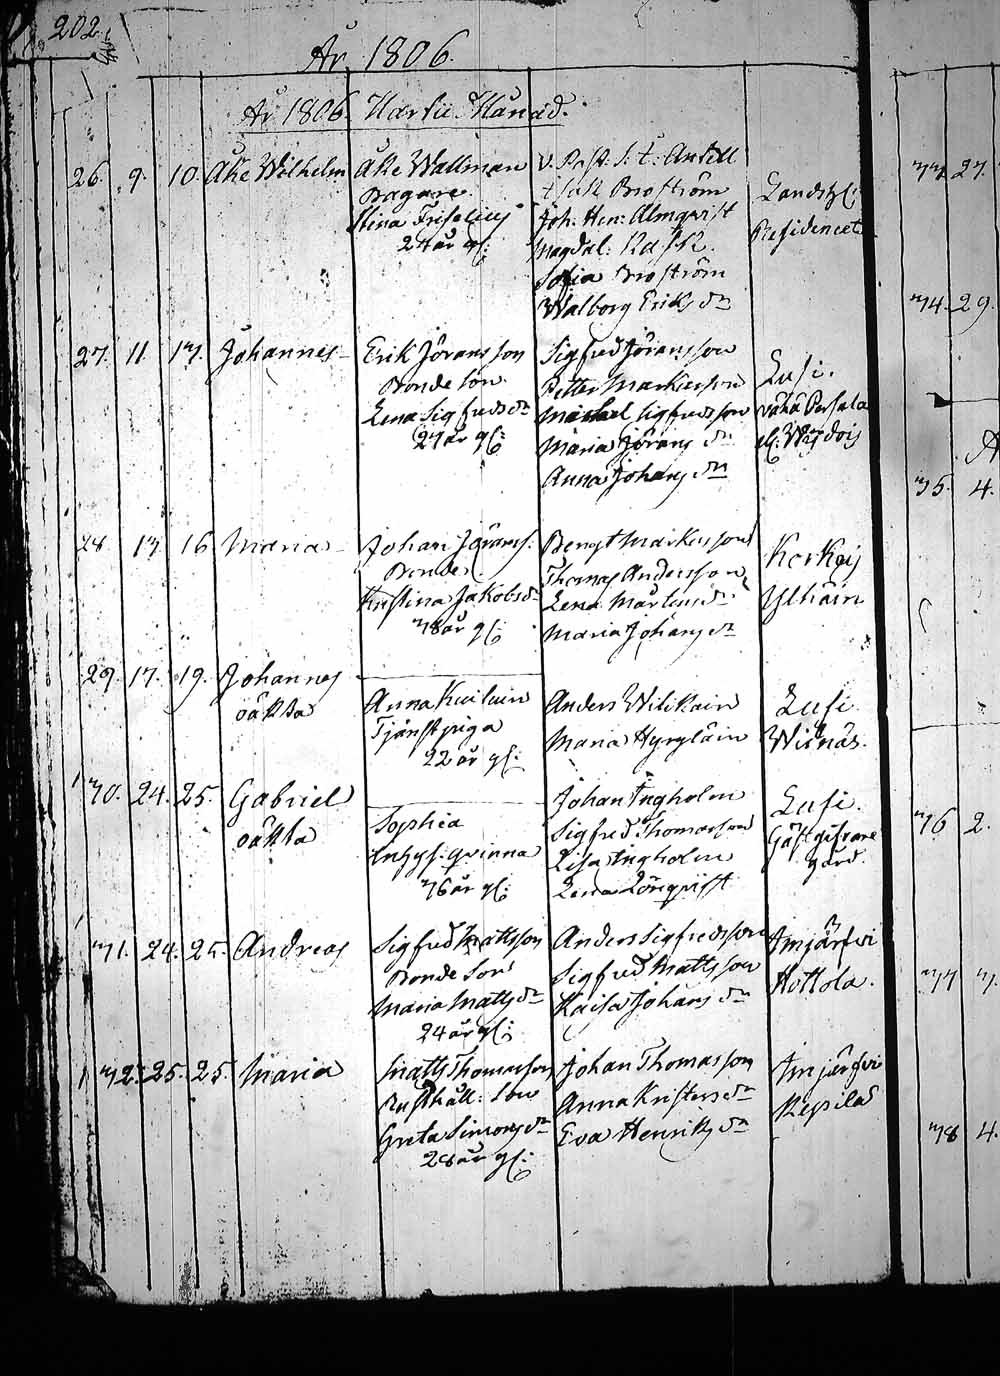 202.
År 1806.
År 1806. Martii Månad.
26. 9. 10. Åke Wilhelm
Åke Wallman
Bagare.
Stina
24 år gl:
V. Past. S. t: Antell
Broström
Joh. Hen: Almqvist
Magdal: Rask
Sofia Broström
Walborg Eriks dr
Landshl:
Residencet
27. 11. 13. Johannes
Erik Jöransson
Bonde son.
Lena Sigfreds dr
27 år gl:
Sigfred Jöransson
Petter Markusson
Michael Sigfredsson
Maria Jörans dr
Anna Johans dr
Lusi.
28 13. 16. Maria
Johan Jöranss:
Bonde
Kristina Jakobs dr
38 år gl:
Bengt Markusson
Thomas Andersson
Lena Mårtens dr
Maria Johans dr
Korkej
Ylhäin
29. 17. 19. Johannes
oäkta
Anna
Tjänstpiga
22 år gl:
Anders Wilikain
Maria Hyryläin
Lusi
Wisnäs.
30. 24. 25. Gabriel
oäkta
Sophia
Inhys: qvinna
36 år gl:
Johan Ingholm
Sigfred Thomasson
Lisa Ingholm
Lena Lönqvist
Lusi.
Gästgifvare
gård.
31. 24. 25. Andreas
Sigfred Mattsson
Bonde Son
Maria Matts dr
24 år gl:
Anders Sigfredsson
Sigfred Mattsson
Kaisa Johans dr
Imjärfvi
Hottola.
32. 25. 25. Maria
Matts Thomasson
Rusthåll: Son
Greta Simons dr
28 år gl:
Johan Thomasson
Anna Kristers dr
Eva Henriks dr
Imjärfvi
Repilä
33. 27.
34. 29.
A
35. 4.
36 2.
37 3.
38 4.